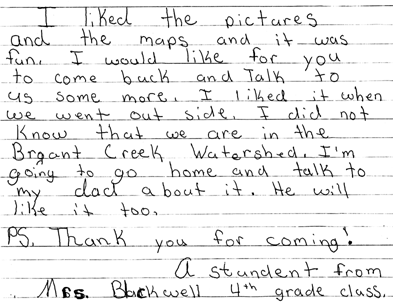 I liked the pictures
and the maps and it was
fun. I would like for you
to come back and Talk to
us some more. I liked it when
we went out side. I did not
Know that we are in the
Bryant Creek Watershed. I'm
going to go home and talk to
my dad about it. He will
like it too.
PS. Thank you for coming!
A stundent from
Mrs. Blackwell 4th grade class.